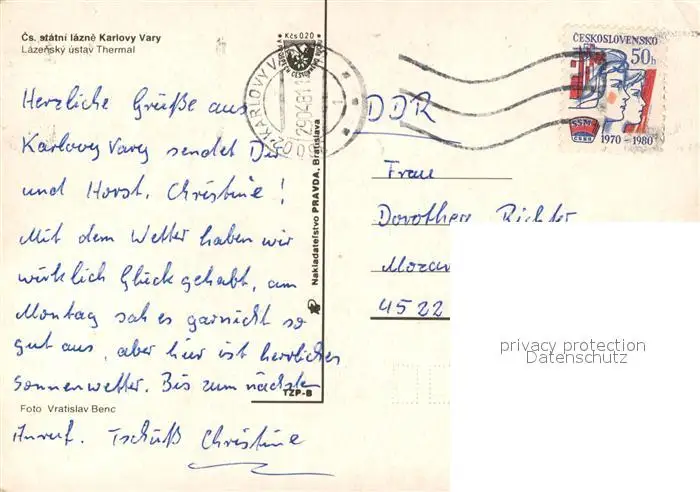 Čs. státní lázně Karlovy Vary
Lázeňský ústav Thermal
Herzliche Grüße aus
Karlovy Vary sendet Dir
und Horst, Christine!
Mit dem Wetter haben wir
wirklich Glück gehabt, am
Montag sah es garnicht so
gut aus, aber hier ist herrliches
Sonnenwetter. Bis zum nächsten
Foto Vratislav Benc
Anruf. Tschüß Christine
Kčs 0,20
KARLOVY VARY
Nakladatelství PRAVDA, Bratislava
TZP-B
ČESKOSLOVENSKO
50h
SSM
1970 – 1980
DDR
Frau
Dorothee Richter
4522
privacy protection
Datenschutz